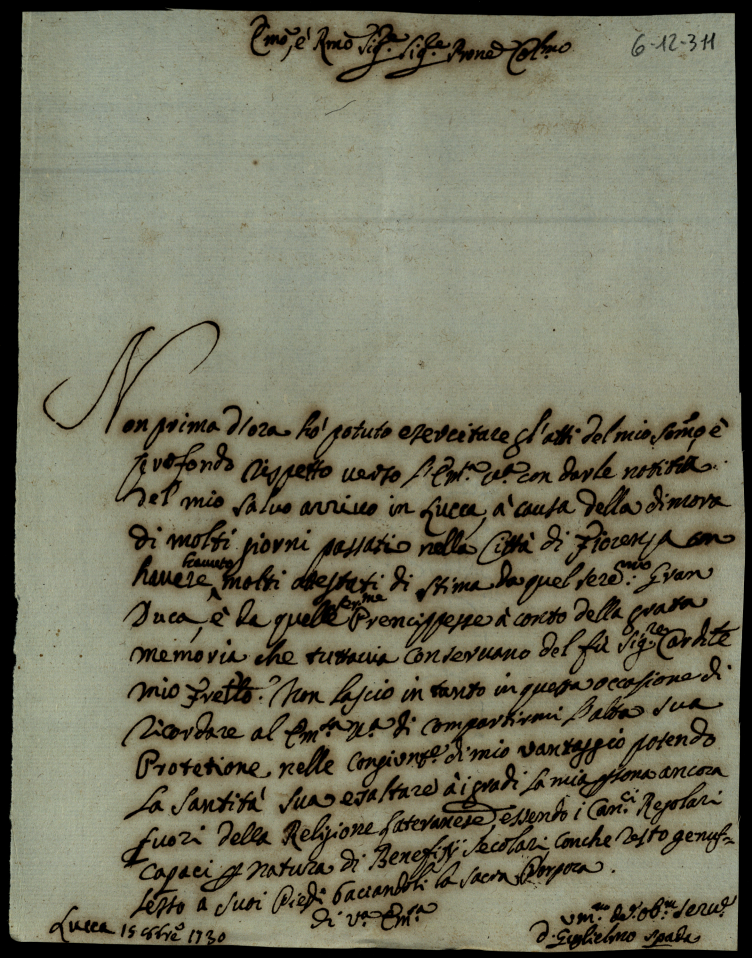 Emo, è Rmo Sig.re Sig.re Prone Col.mo
6-12-311
Non prima d'ora hò potuto esercitare gl'atti del mio somo è
profondo rispetto verso l'Em.a v.a con darle notitia
del mio salvo arrivo in Lucca, à causa della dimora
di molti giorni passati nella Città di Fiorenza con
havere ricevuto molti attestati di stima da quel Sere.mo Gran
Duca, è da quelle Ser.me Prencipesse à conto della grata
memoria che tuttavia conservano del fù Sig.re Cardile
mio Frello. Non lascio in tanto in questa occasione di
ricordare al Em.za V.a di compartirmi l'alta sua
Protetione nelle congiunt.e di mio vantaggio potendo
la Santità sua esaltare à i gradi la mia psona ancora
fuori della Religione Lateranese, essendo i Can.ci Regolari
capaci p natura di Benefizi secolari, con che resto genuf-
lesso a suoi Piedi baciandoli la sacra Porpora.
di V.a Em.a
Lucca 15 1730
um.mo ob.mo serv.e
d. Guglielmo Spada